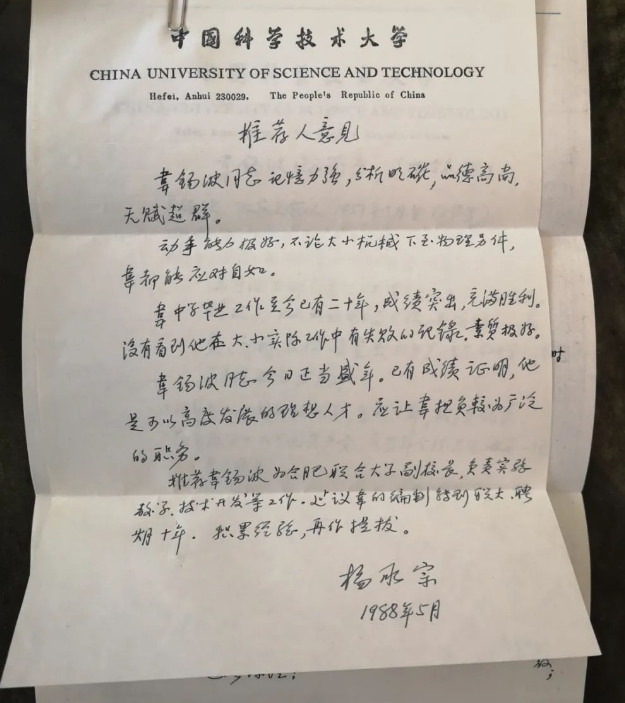 中国科学技术大学
CHINA UNIVERSITY OF SCIENCE AND TECHNOLOGY
Hefei, Anhui 230029. The People's Republic of China
推荐人意见
韋錫波同志 记忆力強，分析明確，品德高尚，
天赋超群。
动手能力极好，不论大小机械下至物理另件，
韋都能应对自如。
韋中学毕业工作至今已有二十年，成绩突出，充滿胜利。
沒有看到他在大、小实际工作中有失敗的纪錄。素質极好。
韋錫波同志今日正当盛年。已有成绩证明，他
是可以高度发展的理想人才。应让韋担负較为广泛
的职务。
推荐韋錫波为合肥联合大学副校长，负责实验
教学、技术开发等工作。建议韋的编制转到联大，聘
期十年．积累经验，再作提拔。
杨承宗
1988年5月
时